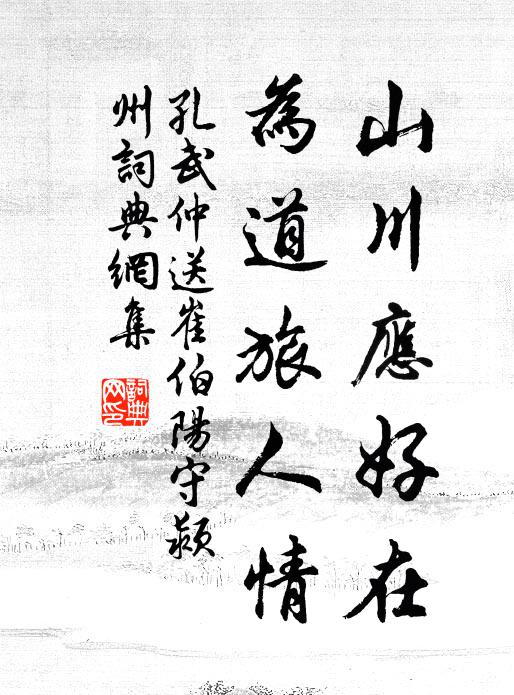 山川應好在
為道旅人情
孔武仲送崔伯陽守潁
州詞典網集
詞典
网印